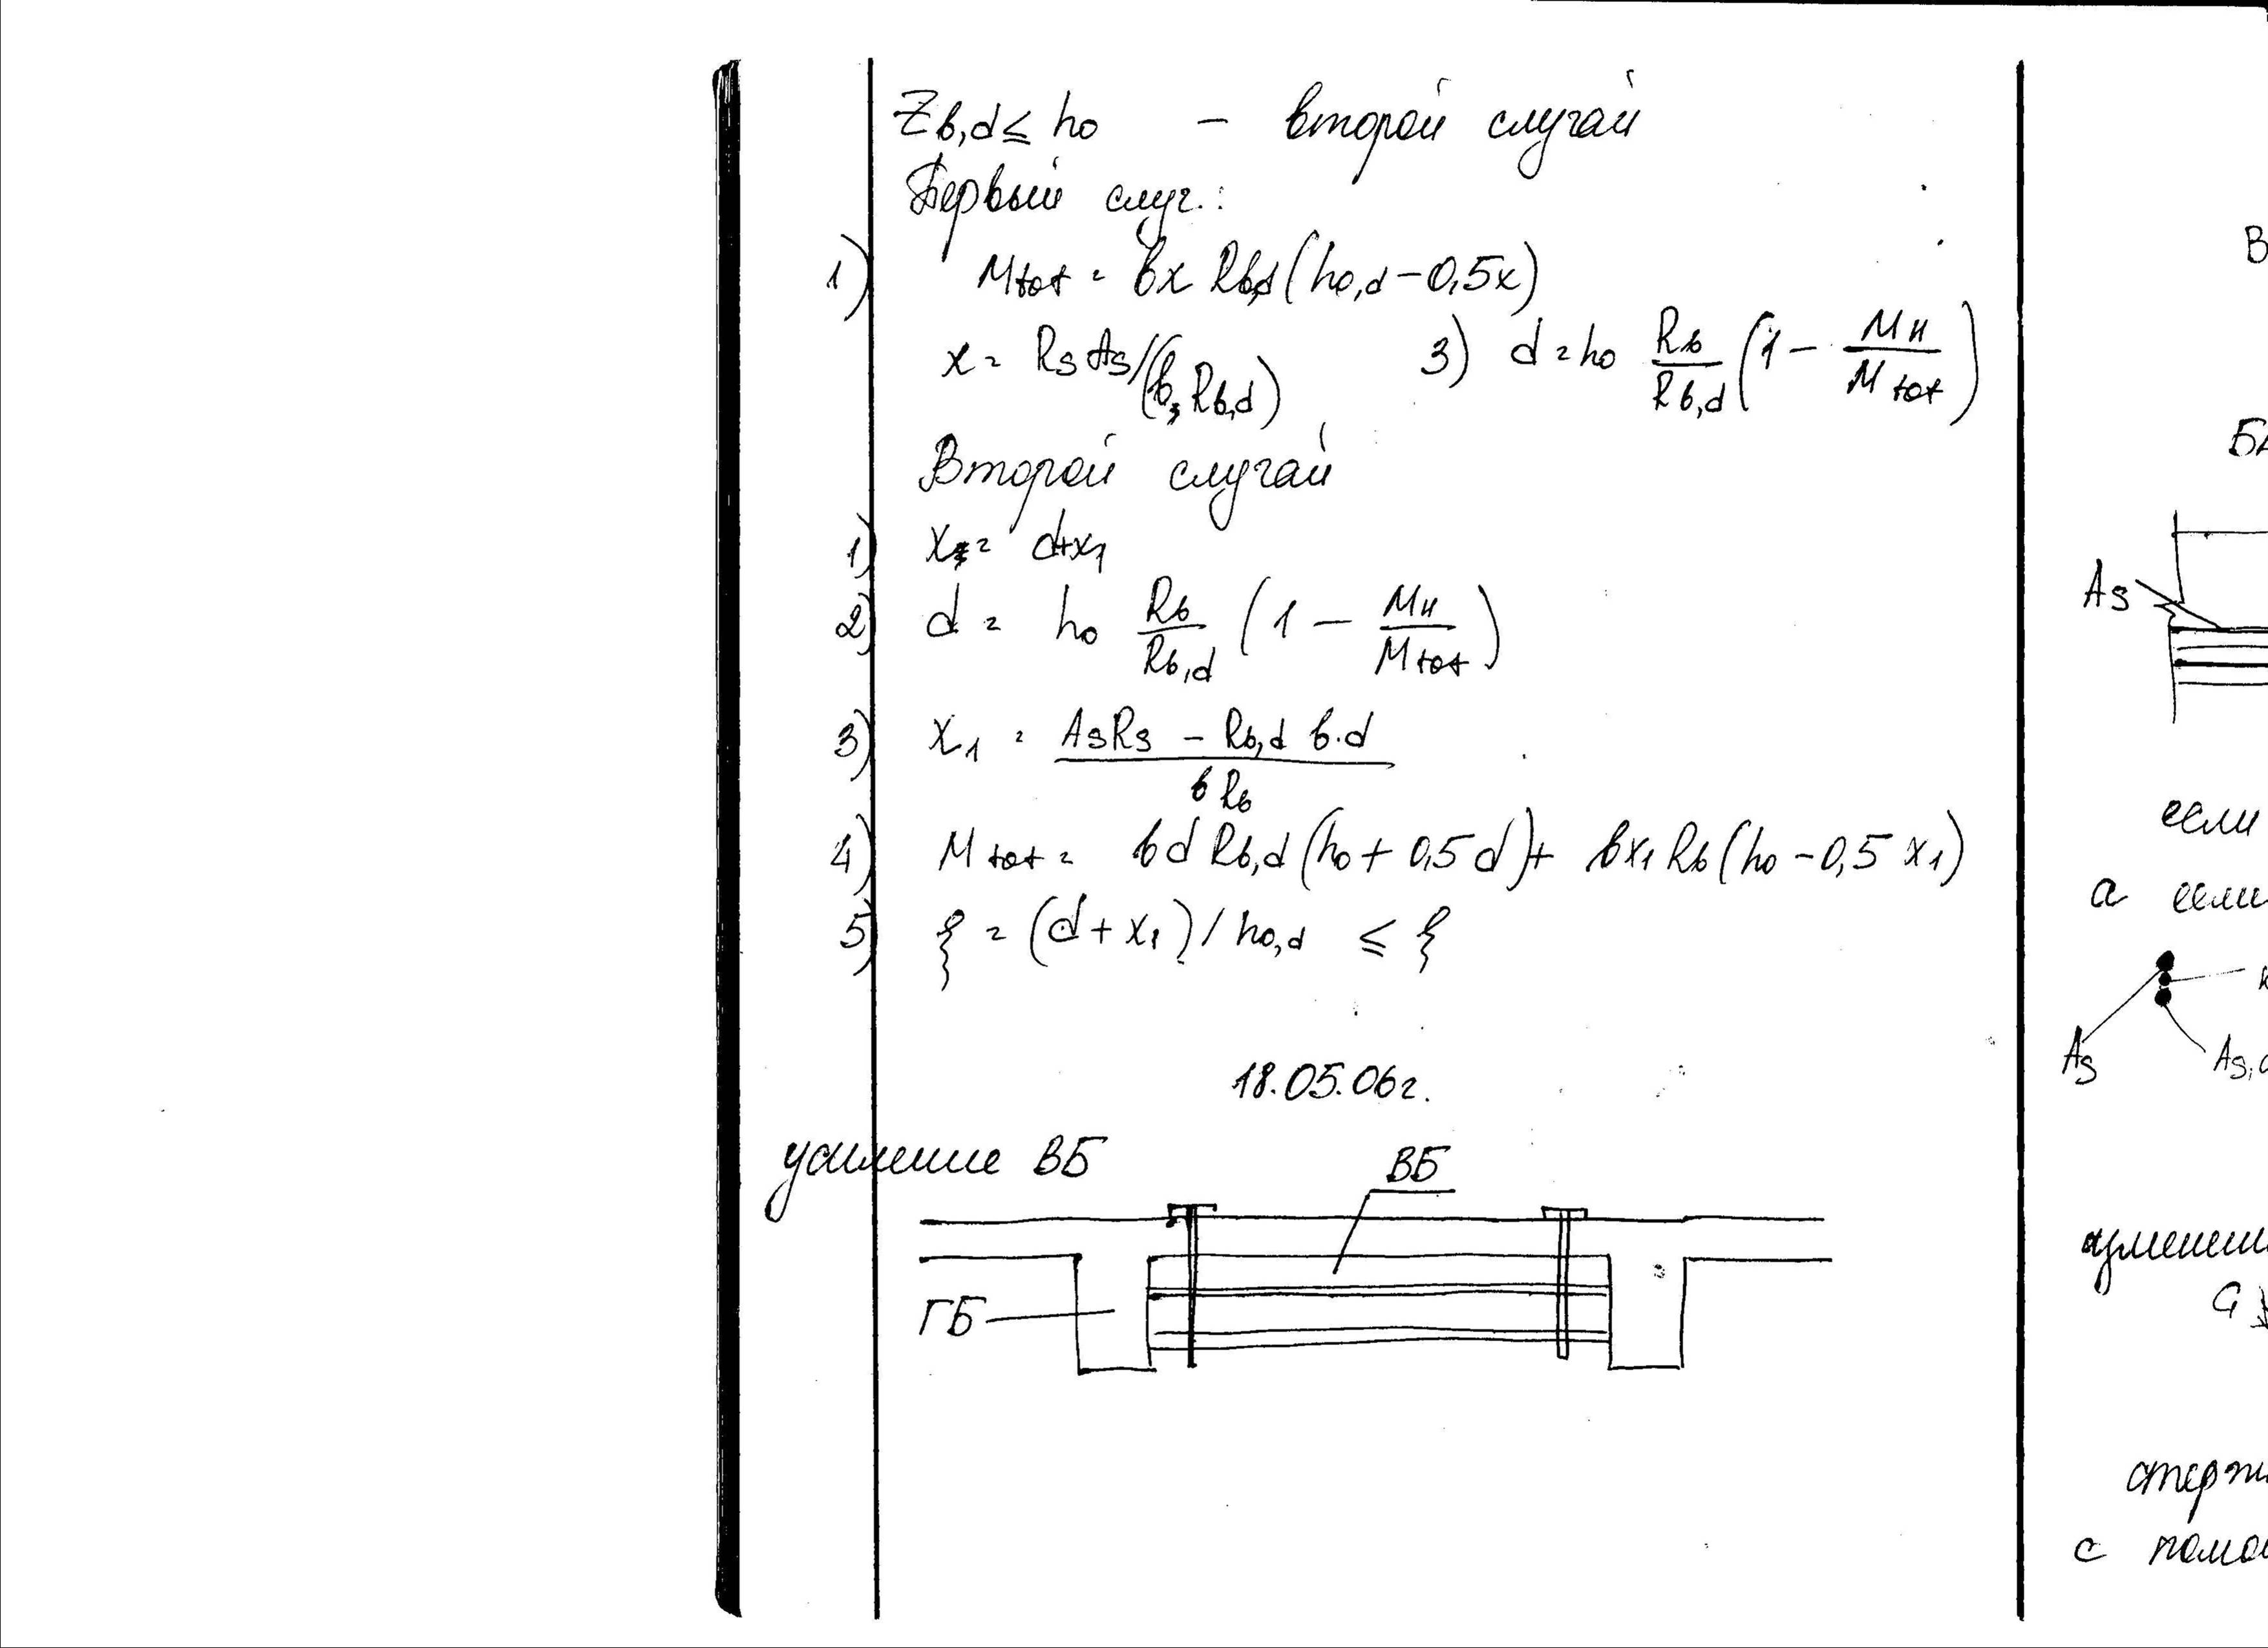 Zb,d ≤ h₀ – второй случай
Первый случ.:
1) Mtot = bx Rb,d (h₀,d – 0,5x)
x = RsAs/(b, Rb,d) 3) d = h₀ Rb/Rb,d (1 – Mн/Mtot)
Второй случай
1) x = d+x₁
2) d = h₀ Rb/Rb,d (1 – Mн/Mtot)
3) x₁ = (AsRs – Rb,d b·d)/(b Rb)
4) Mtot = bd Rb,d (h₀ + 0,5d) + bx₁ Rb (h₀ – 0,5 x₁)
5) ξ = (d + x₁) / h₀,d ≤ ξ
18.05.06г.
усиление ВБ
ВБ
ГБ
В
БА
As
если
а если
As
As,
G
с